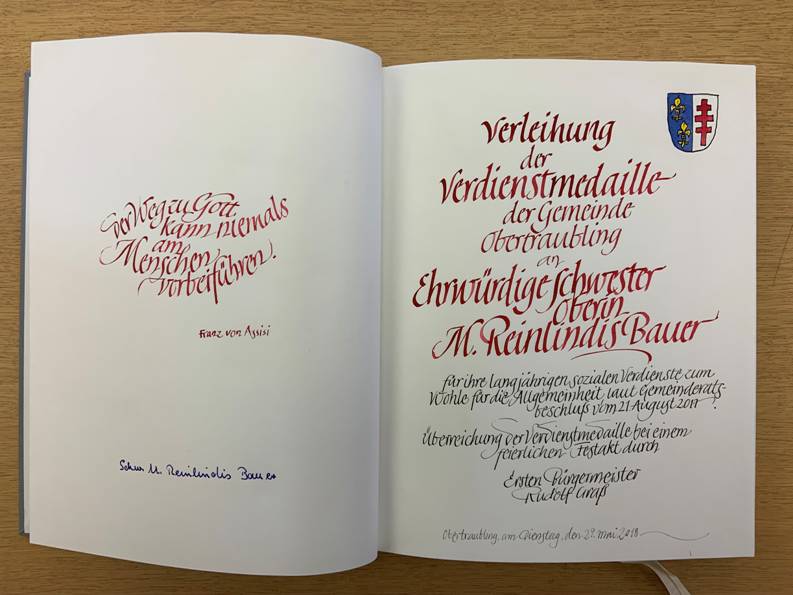 Der Weg zu Gott
kann niemals
am
Menschen
vorbeiführen.
Franz von Assisi
Schw. M. Reinlindis Bauer
Verleihung
der
Verdienstmedaille
der Gemeinde
Obertraubling
an
Ehrwürdige Schwester
Oberin
M. Reinlindis Bauer
für ihre langjährigen sozialen Verdienste zum
Wohle für die Allgemeinheit laut Gemeinderats-
beschluß vom 21. August 2017.
Überreichung der Verdienstmedaille bei einem
feierlichen Festakt durch
Ersten Bürgermeister
Rudolf Graß
Obertraubling, am Dienstag, den 29. Mai 2018